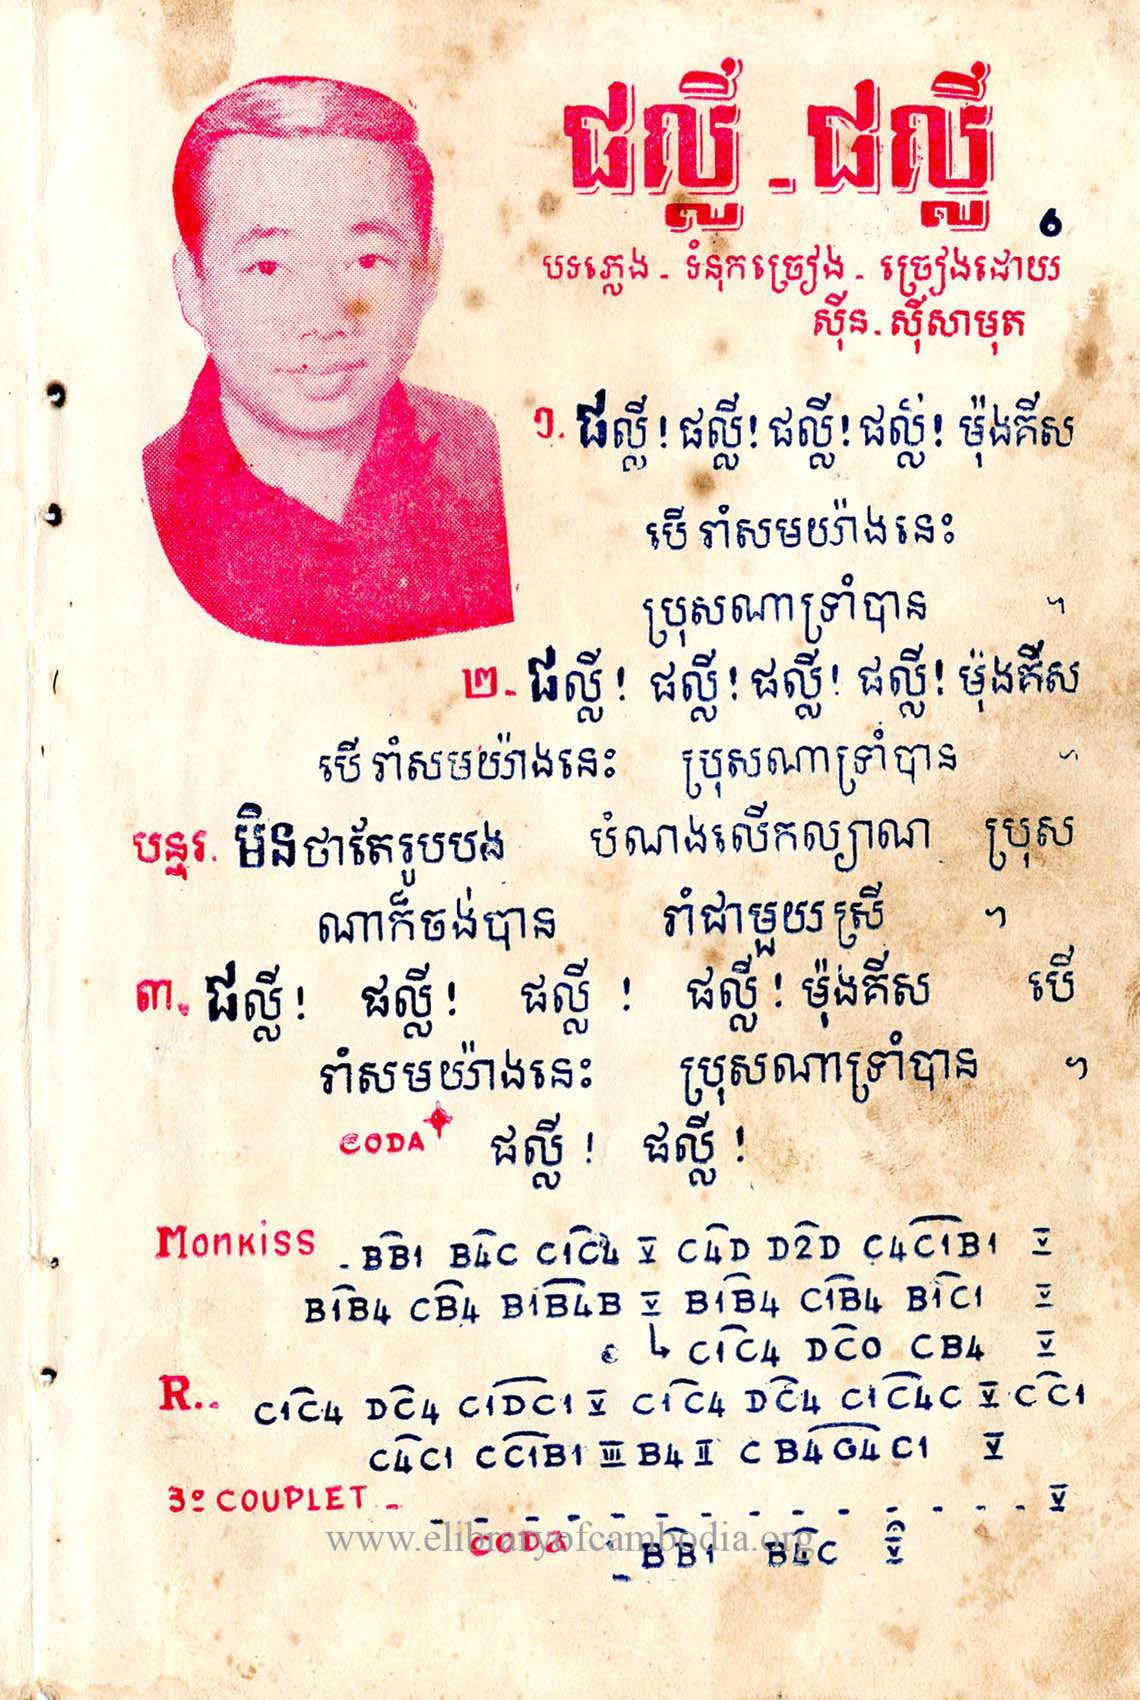 ជល្លី - ជល្លី
6
បទភ្លេង - ទំនុកច្រៀង - ច្រៀងដោយ
ស៊ីន. ស៊ីសាមុត
១. ជល្លី! ជល្លី! ជល្លី! ជល្លី! ម៉ុងគីស
បើ រាំសមយ៉ាងនេះ
ប្រុសណាទ្រាំបាន ។
២- ជល្លី! ជល្លី! ជល្លី! ជល្លី! ម៉ុងគីស
បើ រាំសមយ៉ាងនេះ ប្រុសណាទ្រាំបាន ។
បន្ទរ. មិនថាតែរូបបង បំណងលើកល្យាណ ប្រុស
ណាក៏ចង់បាន រាំជាមួយស្រី ។
៣. ជល្លី! ជល្លី! ជល្លី! ជល្លី! ម៉ុងគីស បើ
រាំសមយ៉ាងនេះ ប្រុសណាទ្រាំបាន ។
CODA ជល្លី! ជល្លី!
Monkiss - BB1 B4C C1C4 V C4D D2D C4C1B1 V
B1B4 CB4 B1B4B V B1B4 C1B4 B1C1 V
C1C4 DC0 CB4 V
R.. C1C4 DC4 C1DC1 V C1C4 DC4 C1C4C V CC1
C4C1 CC1B1 III B4 II C B4G4C1 V
3º COUPLET - - - - - - - - - - - - V
CODA - BB1 B4C V
www.elibraryofcambodia.org